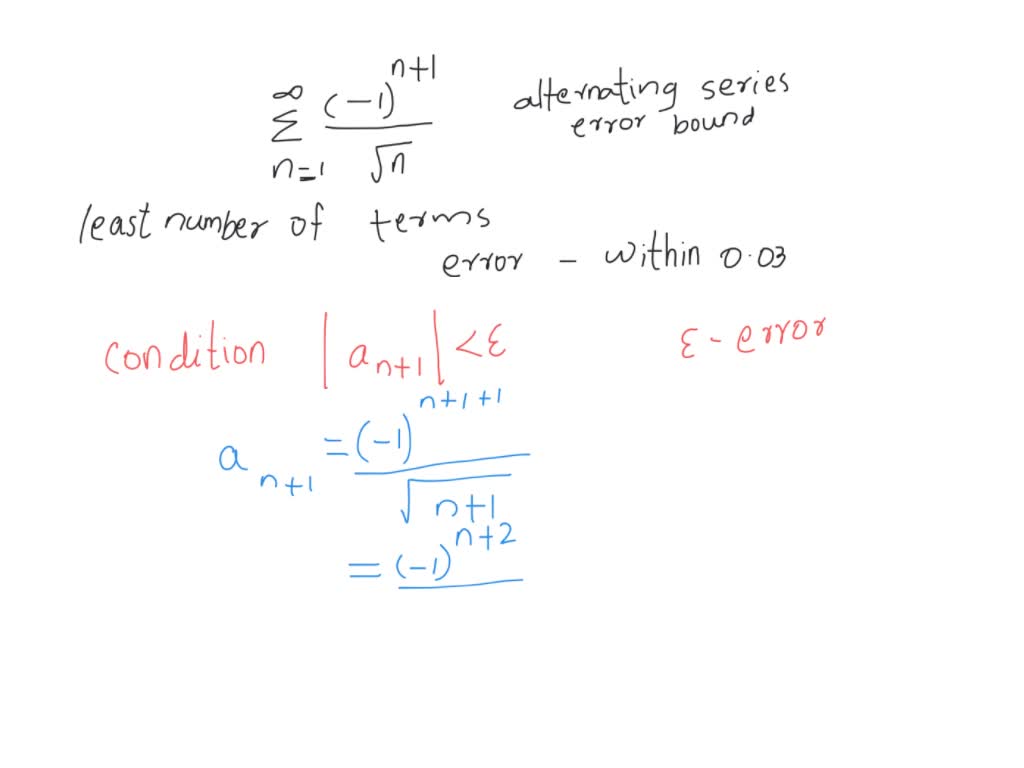 ∞ Σ n=1 (-1)^{n+1} / √n alternating series
error bound
least number of terms
error - within 0.03
condition |a_{n+1}| < ε ε - error
a_{n+1} = (-1)^{n+1+1} / √n+1
= (-1)^{n+2}